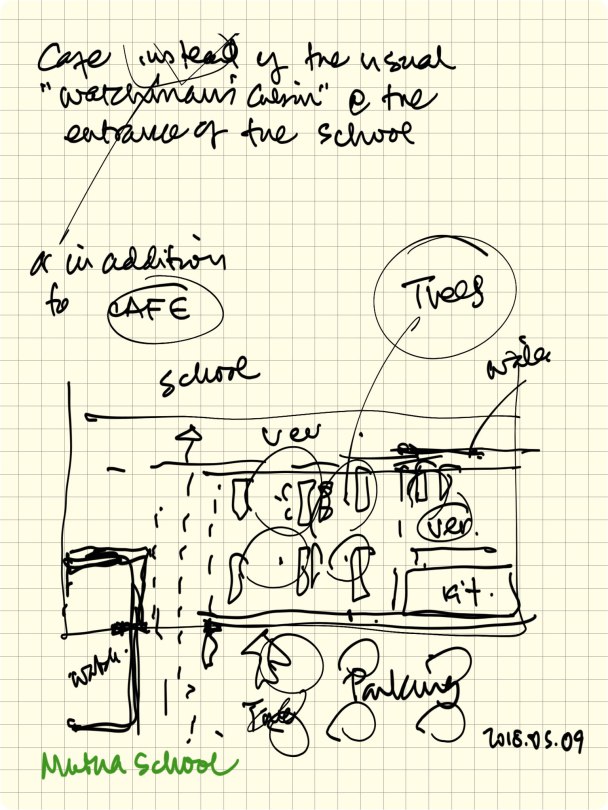 Cafe instead of the usual
"watchman's Cabin" @ the
entrance of the school
or in addition
to CAFE
Trees
school
ver
ver.
Kit.
watch.
Parking
2018.05.09
Mutha School